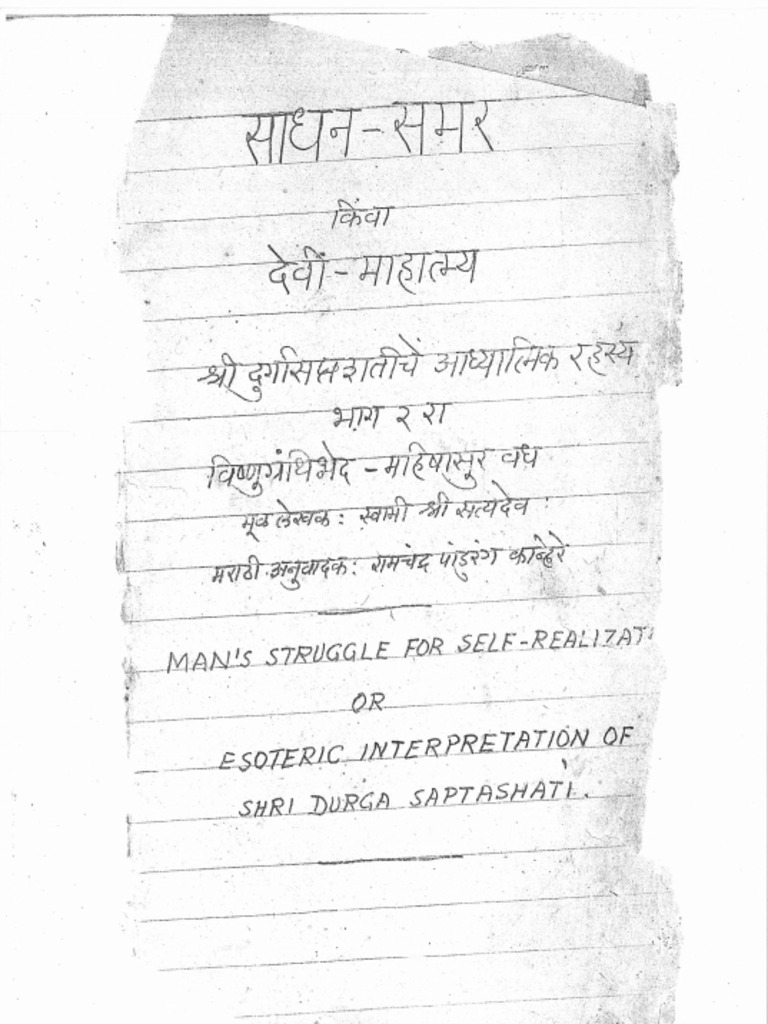 साधन-समर
किंवा
देवी-माहात्म्य
श्री दुर्गासप्तशतीचें आध्यात्मिक रहस्य
भाग २ रा
विष्णुग्रंथिभेद - महिषासुर वध
मूळ लेखक: स्वामी श्री सत्यदेव
मराठी अनुवादक: रामचंद्र पांडुरंग कान्हेरे
MAN'S STRUGGLE FOR SELF-REALIZAT
OR
ESOTERIC INTERPRETATION OF
SHRI DURGA SAPTASHATI.